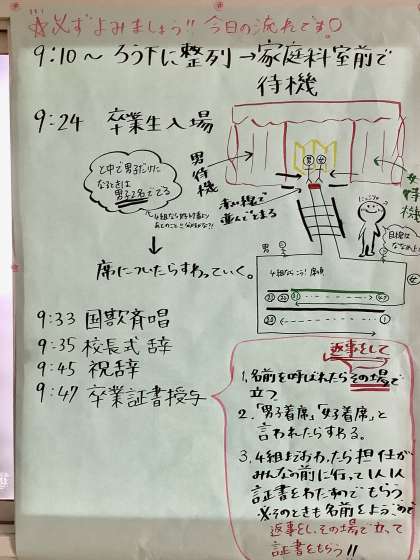 ☆必ずよみましょう!! 今日の流れです。
9:10〜ろう下に整列→家庭科室前で
待機
9:24 卒業生入場
と中で男子だけに
なるときは
男子2名ででる
男
待機
赤い線で
並んでとまる
女
待機
男
女
にっこり
目線は
ななめ上
↓
席についたらすわっていく。
男
女
4組ならこう! 席順
9:33 国歌斉唱
9:35 校長式辞
9:45 祝辞
9:47 卒業証書授与
返事をして
1. 名前を呼ばれたらその場で
立つ
2. 「男子着席」「女子着席」と
言われたらすわる。
3. 4組までおわったら担任が
みんなの前に行って1人1人
証書をわたすのでもらう
必そのときも名前をよぶので
返事をし、その場で立って
証書をもらう!!